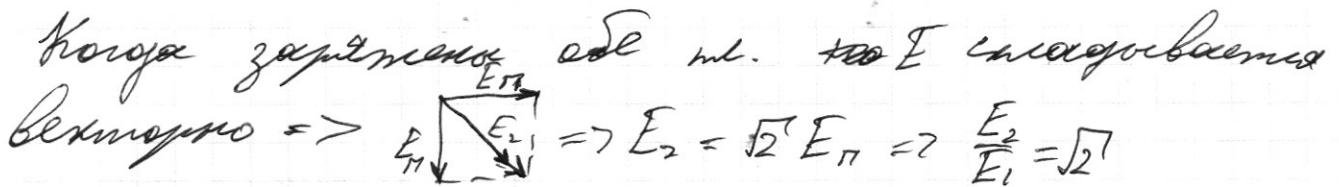 Когда заряжены обе пл. E складывается
E_П
векторно => E_П E_2 => E_2 = √2 E_П => E_2/E_1 = √2